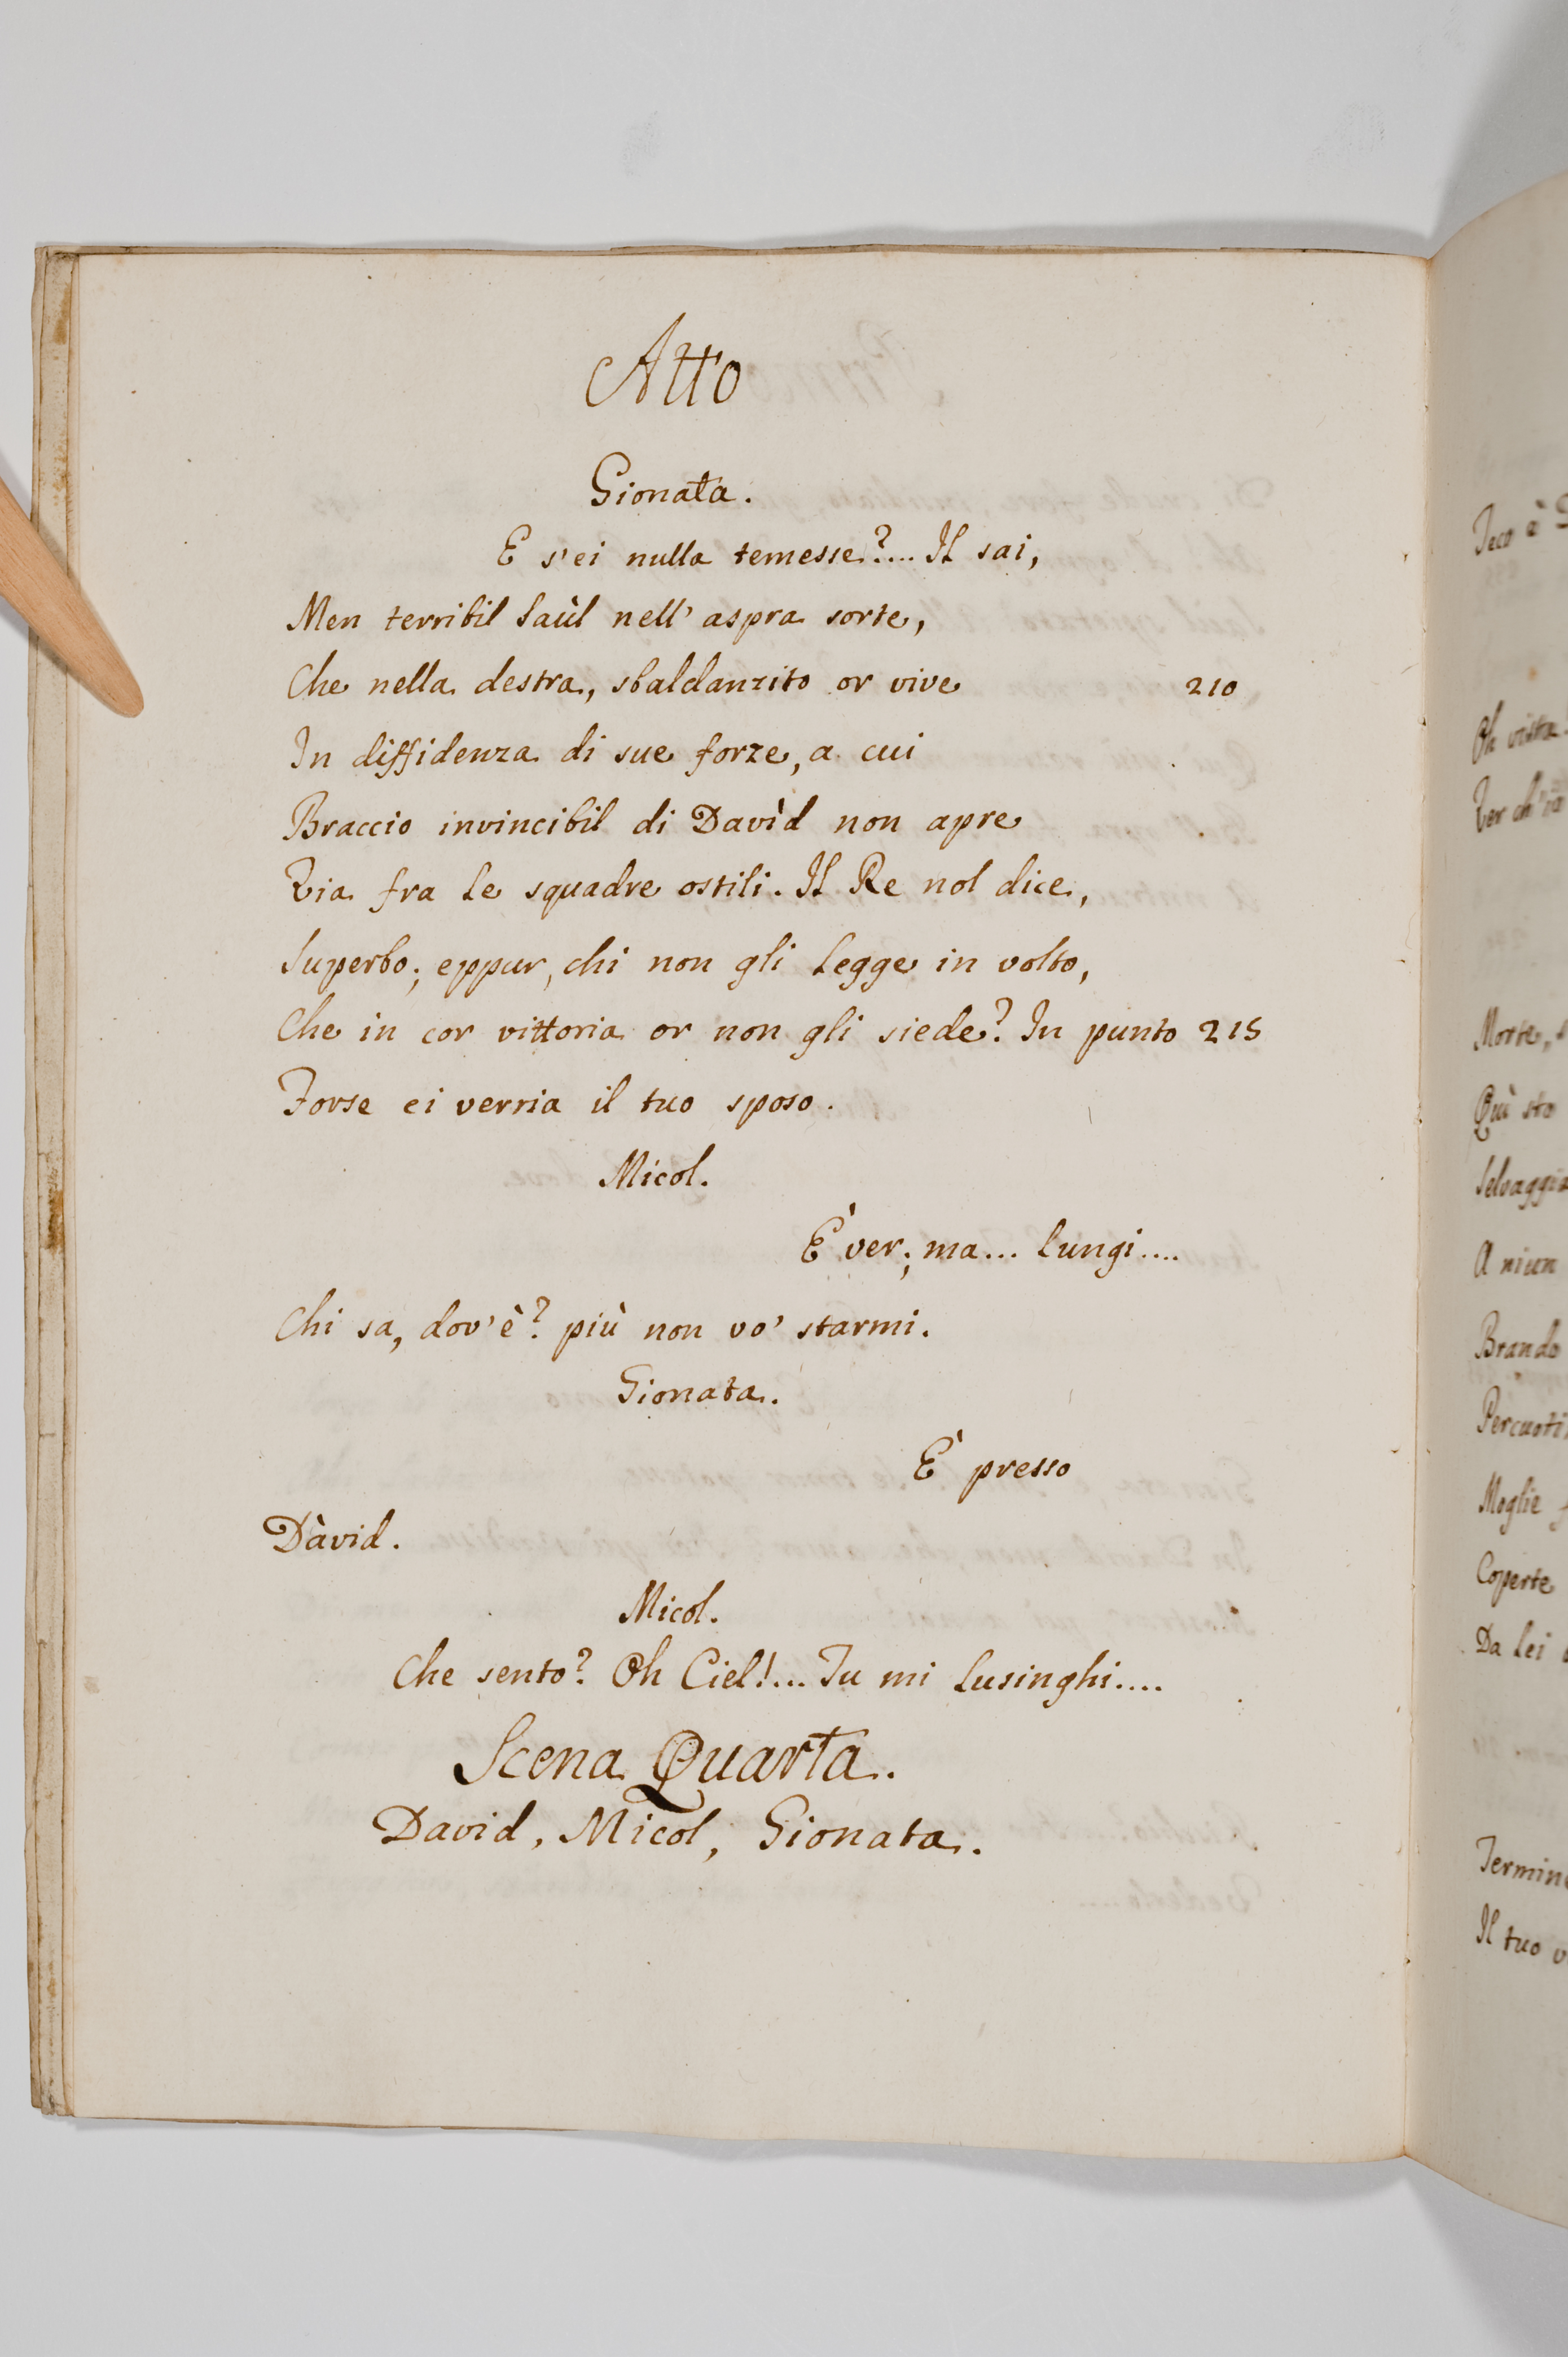 Atto
Gionata.
E s'ei nulla temesse?.... Il sai,
Men terribil Saùl nell' aspra sorte,
Che nella destra, sbaldanzito or vive 210
In diffidenza di sue forze, a cui
Braccio invincibil di Davìd non apre
Via fra le squadre ostili. Il Re nol dice,
Superbo; eppur, chi non gli legge in volto,
Che in cor vittoria or non gli siede? In punto 215
Forse ei verria il tuo sposo.
Micol.
È ver; ma... lungi....
Chi sa, dov'è? più non vo' starmi.
Gionata.
È presso
Dàvid.
Micol.
Che sento? Oh Ciel!... Tu mi lusinghi....
Scena Quarta.
David, Micol, Gionata.
Teco è
Oh vista
Morte,
Quì sto
Selvaggia
A niun
Brando
Moglie
Coperte
Da lei
Il tuo